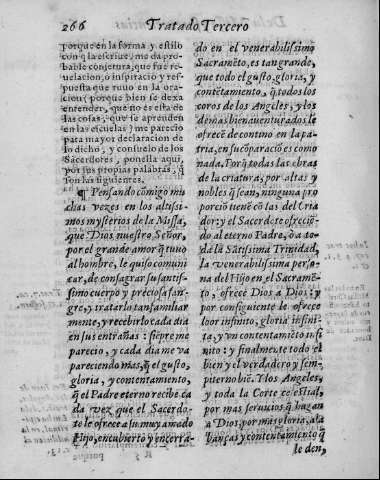 266 Tratado Tercero
porque en la forma y estilo
con q̃ la escriue, me da pro-
bable conjetura, que fue re-
uelacion, o inspiracio y res-
puesta que tuuo en la ora-
cion (porque bien se dexa
entender, que no es esta de
las cosas, que se aprenden
en las escuelas) me parecio
para mayor declaracion de
lo dicho, y consuelo de los
Sacerdotes, ponella aqui,
por sus propias palabras, q̃
son las siguientes.
¶ Pensando cõmigo mu
chas vezes en los altissi-
mos mysterios de la Missa,
que Dios nuestro Señor,
por el grande amor q̃ tuuo
al hombre, le quiso comuni
car, de consagrar su santis-
simo cuerpo y preciosa san-
gre, y tratarlo tan familiar
mente, y recebirlo cada dia
en sus entrañas: siẽpre me
parecio, y cada dia me va
pareciendo mas, q̃ el gusto,
gloria, y contentamiento,
q̃ el Padre eterno recibe ca
da vez que el Sacerdo-
te le ofrece a su muy amado
Hijo, encubierto y encerra-
do en el venerabilissimo
Sacramẽto, es tan grande,
que todo el gusto, gloria, y
contẽtamiento, q̃ todos los
coros de los Angeles, y los
demas bienauenturados le
ofrecẽ de contino en la pa-
tria, en su cõparaciõ es como
nada. Porq̃ todas las obras
de la criatura, por altas y
nobles q̃ sean, ninguna pro
porciõ tienẽ cõ las del Cria
dor: y el Sacerdote ofreciẽ-
do al eterno Padre, o a to-
da la Sãtissima Trinidad,
la venerabilissima perso-
na del Hijo en el Sacramẽ-
to, ofrece Dios a Dios: y
por consiguiente le ofrece
loor infinito, gloria infini-
ta, y vn contentamiẽto infi
nito: y finalmente todo el
bien y el verdadero y sem-
piterno biẽ. Y los Angeles,
y toda la Corte celestial,
por mas seruicios q̃ hagan
a Dios, por mas gloria, ala
banças y contentamiento q̃
le den,